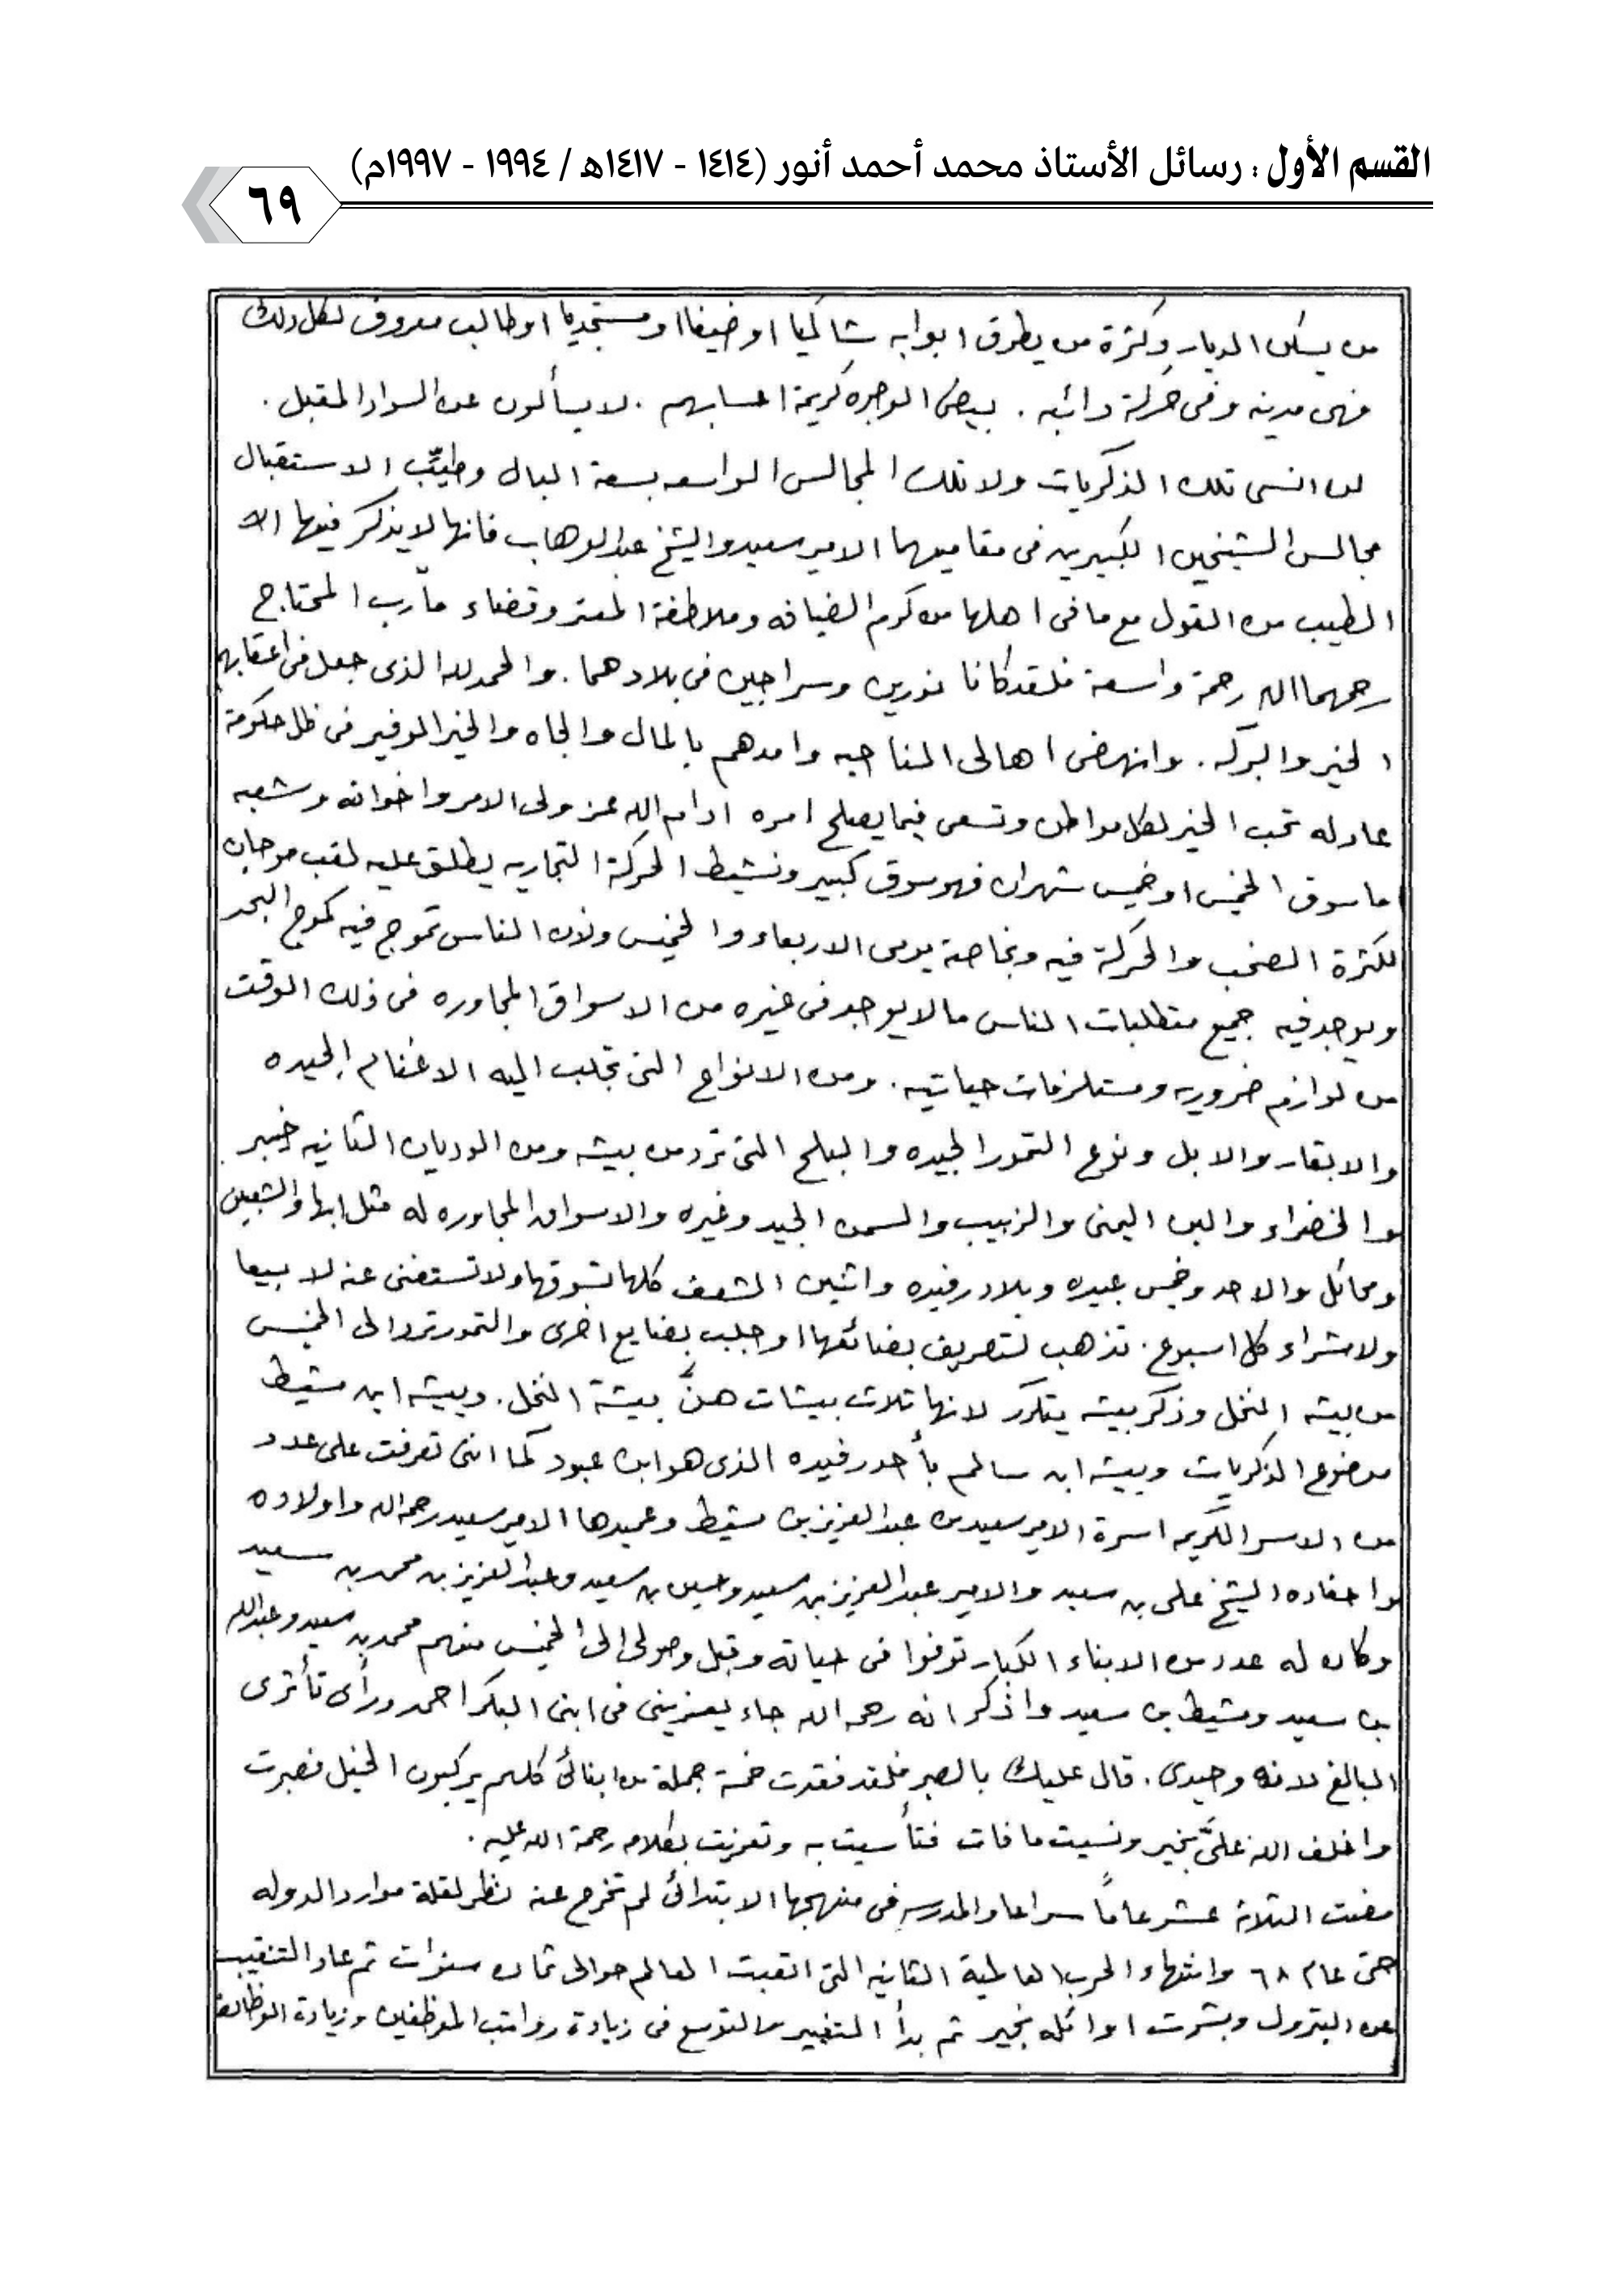 القسم الأول : رسائل الأستاذ محمد أحمد أنور (١٤١٤ - ١٤١٧هـ / ١٩٩٤ - ١٩٩٧م)
٦٩
من يسكن الديار وكثرة من يطرق ابوابه شاكيا او ضيفا او مستجديا او طالب معروف لكل ذلك
فهى مدينه وفى حركة دائبه . بيض الوجوه كريمة احسابهم . لا يسألون عن السواد المقبل .
لن انسى تلك الذكريات ولا تلك المجالس الواسعه بسعة البال وطيّب الاستقبال
مجالس الشيخين الكبيرين فى مقاميهما الامير سعيد والشيخ عبدالوهاب فانها لا يذكر فيها الا
الطيب من القول مع ما فى اهلها من كرم الضيافه وملاطفة المعتر وقضاء مآرب المحتاج
رحمهما الله رحمة واسعة فلقد كانا نورين وسراجين فى بلادهما . والحمد لله الذى جعل فى اعقابهم
الخير والبركه . وانهض اهالى المناحيه وامدهم بالمال والجاه والخير الوفير فى ظل حكومة
عادله تحب الخير لكل مواطن وتسعى فيما يصلح امره ادام الله عز ولى الامر واخوانه وشعبه
اما سوق الخميس او خميس شهران فهو سوق كبير ونشيط الحركة التجاريه يطلق عليه لقب موجان
لكثرة الصخب والحركة فيه وبخاصة يومى الاربعاء والخميس ولان الناس تموج فيه كموج البحر
ويوجد فيه جميع متطلبات الناس مالا يوجد فى غيره من الاسواق المجاوره فى ذلك الوقت
من لوازم ضروريه ومستلزمات حياتيه . ومن الانواع التى تجلب اليه الاغنام الجيده
والابقار والابل ونوع التمور الجيده والبلح التى ترد من بيشه ومن الوديان الثانيه خيبر
والخضراء والبن اليمنى والزبيب والسمن الجيد وغيره والاسواق المجاوره له مثل ابها والشعبين
ومحائل والاحد وخميس عبيده وبلاد رفيده واثنين الشعف كلها تسوقها ولا تستغنى عنه لا بيعا
ولا شراء كل اسبوع . تذهب لتصريف بضائعها او جلب بضايع اخرى والتمور ترد الى الخميس
من بيشه النخل وذكر بيشه يتكرر لانها ثلاث بيشات هنَّ بيشة النخل . وبيشه ابن مشيط
موضوع الذكريات وبيشه ابن سالم بأحد رفيده الذى هو ابن عبود كما اننى تعرفت على عدد
من الاسر الكريمه اسرة الامير سعيد بن عبدالعزيز بن مشيط وعميدها الامير سعيد رحمه الله واولاده
واحفاده الشيخ على بن سعيد والامير عبدالعزيز بن سعيد وحسين بن سعيد وعبدالعزيز بن محمد بن سعيد
وكان له عدد من الابناء الكبار توفوا فى حياته وقبل وصولى الى الخميس منهم محمد بن سعيد وعبدالله
بن سعيد ومشيط بن سعيد واذكر انه رحمه الله جاء يعزينى فى ابنى البكر احمد ورأى تأثرى
البالغ لانه وحيدى . قال عليك بالصبر فلقد فقدت خمسة جملة من ابنائى كلهم يركبون الخيل فصبرت
واخلف الله علىَّ بخير ونسيت ما فات فتأسيت به وتعزيت بكلامه رحمة الله عليه .
مضت الثلاثة عشر عاماً سراعا والمدرسه فى منهجها الابتدائى لم تخرج عنه نظر لقلة موارد الدوله
حتى عام ٦٨ وانتهاء الحرب العالمية الثانيه التى اتعبت العالم حوالى ثمان سنوات ثم عاد التنقيب
عن البترول وبشرت اوائله بخير ثم بدأ التغيير والتوسع فى زيادة رواتب الموظفين وزيادة الوظائف